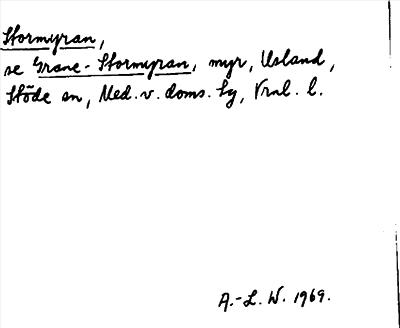 Stormyran,
se Grane-Stormyran, myr, Usland,
Stöde sn, Med. v. doms. tg, Vrnl. l.
A.-L. W. 1969.